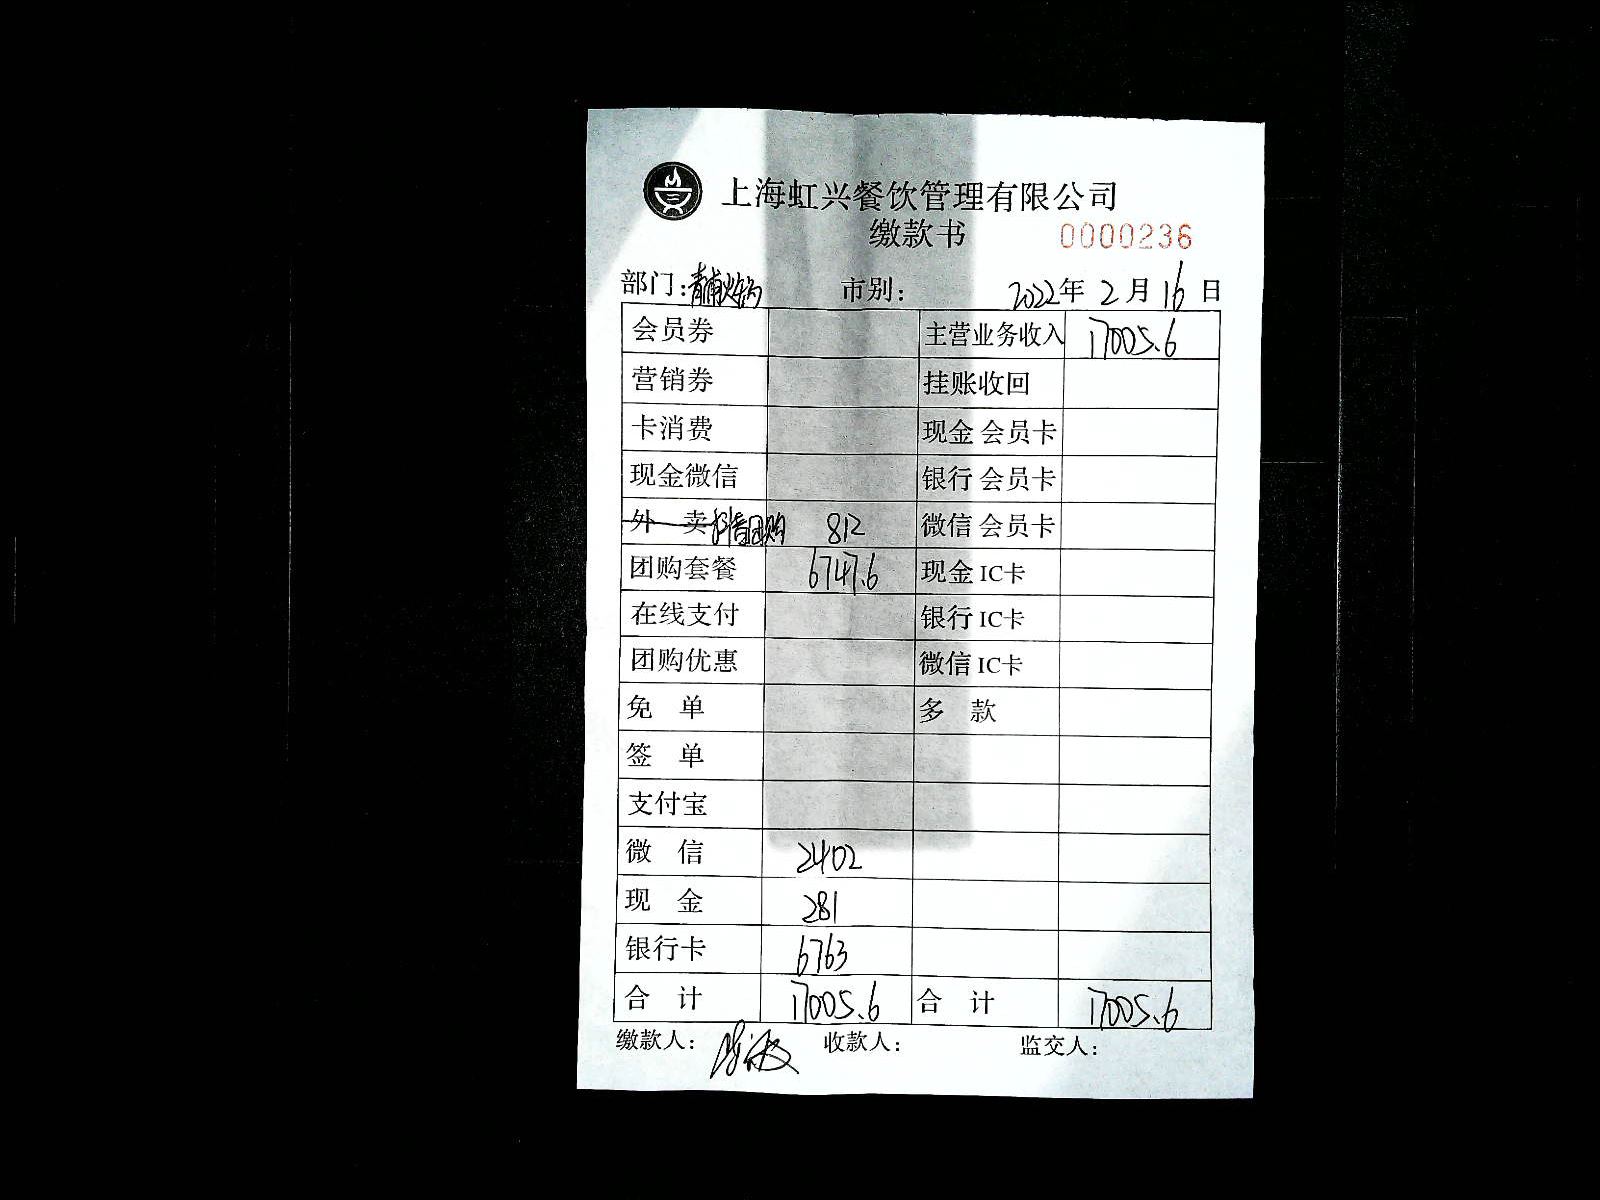 上海虹兴餐饮管理有限公司
缴款书 0000236
部门:青浦火锅 市别: 2022年2月16日
会员券 主营业务收入 17005.6
营销券 挂账收回
卡消费 现金 会员卡
现金微信 银行 会员卡
外 卖 抖音团购 812 微信 会员卡
团购套餐 6747.6 现金 IC卡
在线支付 银行 IC卡
团购优惠 微信 IC卡
免 单 多 款
签 单
支付宝
微 信 2402
现 金 281
银行卡 6763
合 计 17005.6 合 计 17005.6
缴款人: 收款人: 监交人: